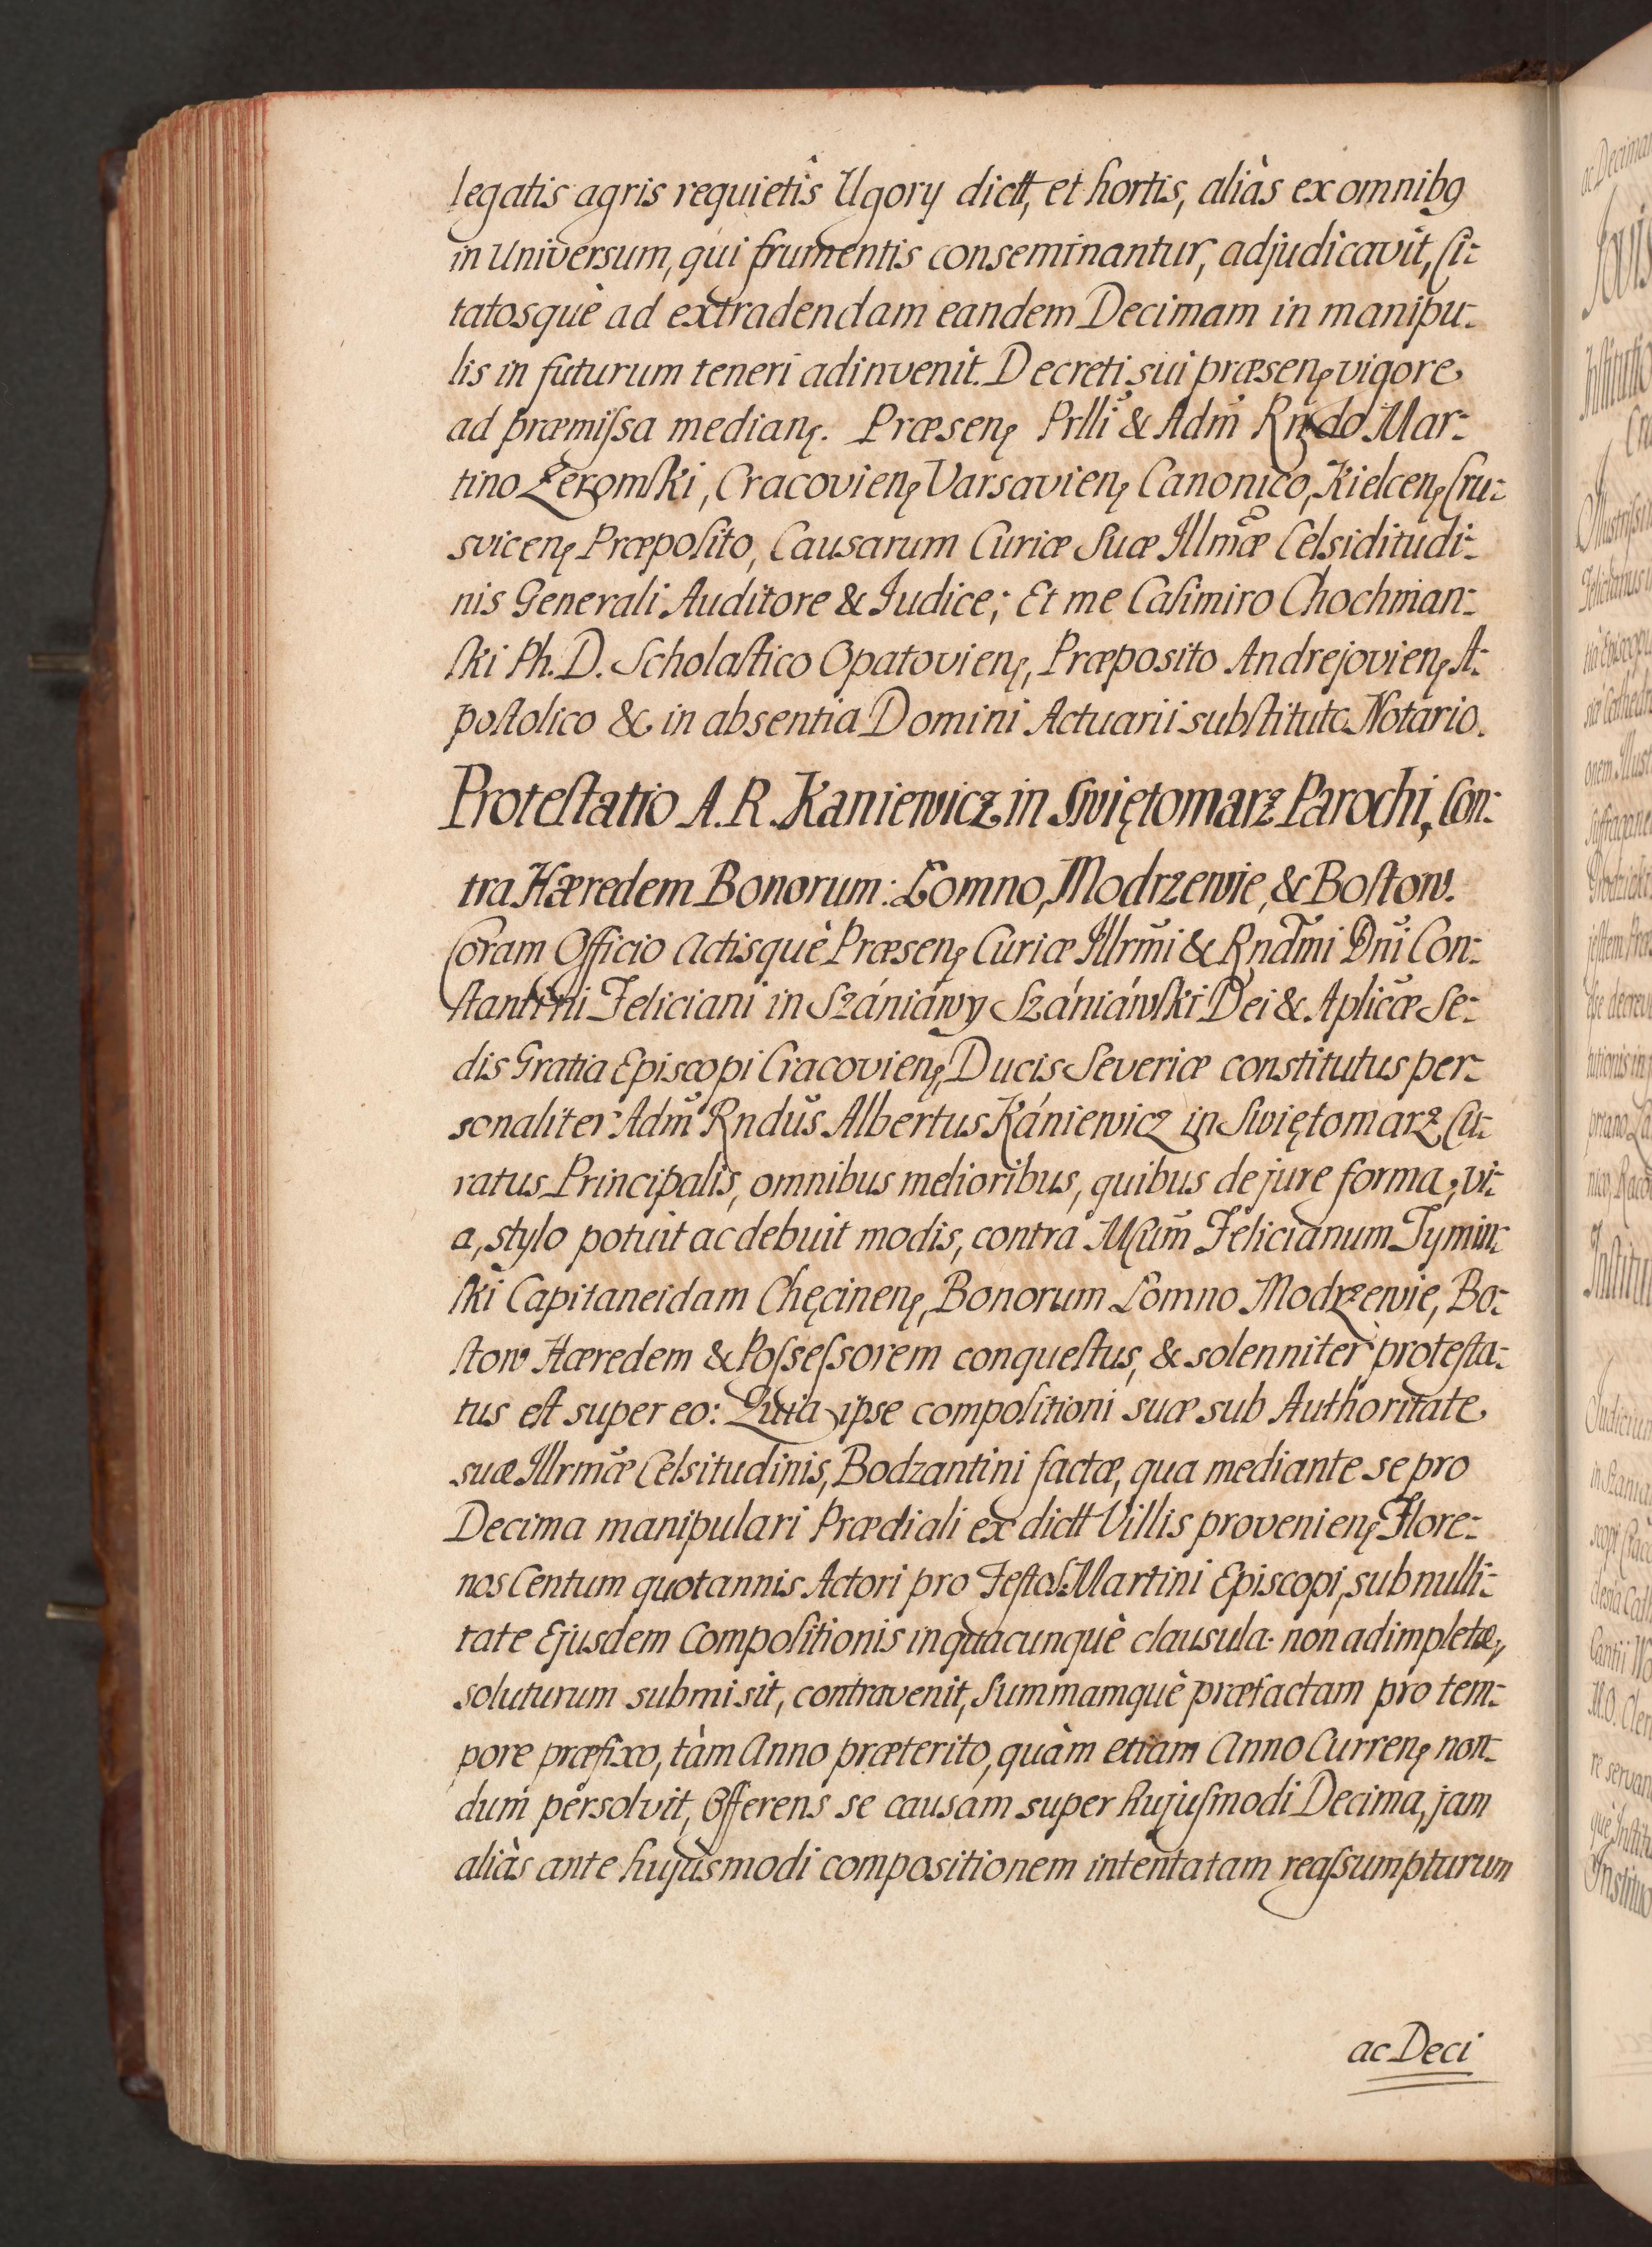 legatis agris requietis Ugory dictt, et hortis, aliàs ex omnibg
in Universum, qui frumentis conseminantur, adjudicavit, Ci-
tatosquè ad extradendam eandem Decimam in manipu-
lis in futurum teneri adinvenit. Decreti sui præsenę vigore
ad præmiſsa medianę. Præsenę Prlli & Adm̃ Rndo Mar-
tino Żeromſki, Cracovienę Varsavienę Canonico, Kielcenę Cru-
svicenę Præpoſito, Causarum Curiæ Suæ Illmæ Celsiditudi-
nis Generali Auditore & Judice; Et me Caſimiro Chochman-
ſki Ph. D. Scholaſtico Opatovienę, Præposito Andrejovienę A-
poſtolico & in absentia Domini Actuarii subſtituto Notario.
Proteſtatio A. R. Kaniewicz in Swiętomarz Parochi, Con-
tra Hæredem Bonorum: Łomno, Modrzewie, & Boſtow.
Coram Officio Actisquè Præsenę Curiæ Illrm̃i & Rndm̃i Dñi Con-
ſtantini Feliciani in Szániáwy Szániáwſki Dei & Aplicæ Se-
dis Gratia Episcopi Cracovienę, Ducis Severiæ constitutus per-
sonaliter Adm̃ Rndus Albertus Kániewicz in Swiętomarz Cu-
ratus Principalis, omnibus melioribus, quibus de jure forma, vi-
a, stylo potuit ac debuit modis, contra Mcum̃ Felicianum Tymiń-
ſki Capitaneidam Chęcinenę, Bonorum Łomno Modrzewie, Bo-
ſtow Hæredem & Poſseſsorem conqueſtus, & solenniter proteſta-
tus eſt super eo: Quia ipse compoſitioni suæ sub Authoritate
suæ Illrmæ Celsitudinis, Bodzantini factæ, qua mediante se pro
Decima manipulari Prædiali ex dictt Villis provenienę Flore-
nos Centum quotannis Actori pro Feſto S. Martini Episcopi, sub nulli-
tate Ejusdem Compoſitionis in quacunquè clausula non adimpletæ,
soluturum submisit, contravenit, Summamquè præfactam pro tem-
pore præfixo, tàm Anno præterito, quàm etiam Anno Currenę non-
dum persolvit, Offerens se causam super hujuſmodi Decima, jam
aliàs ante hujusmodi compositionem intentatam reaſsumpturum
ac Deci